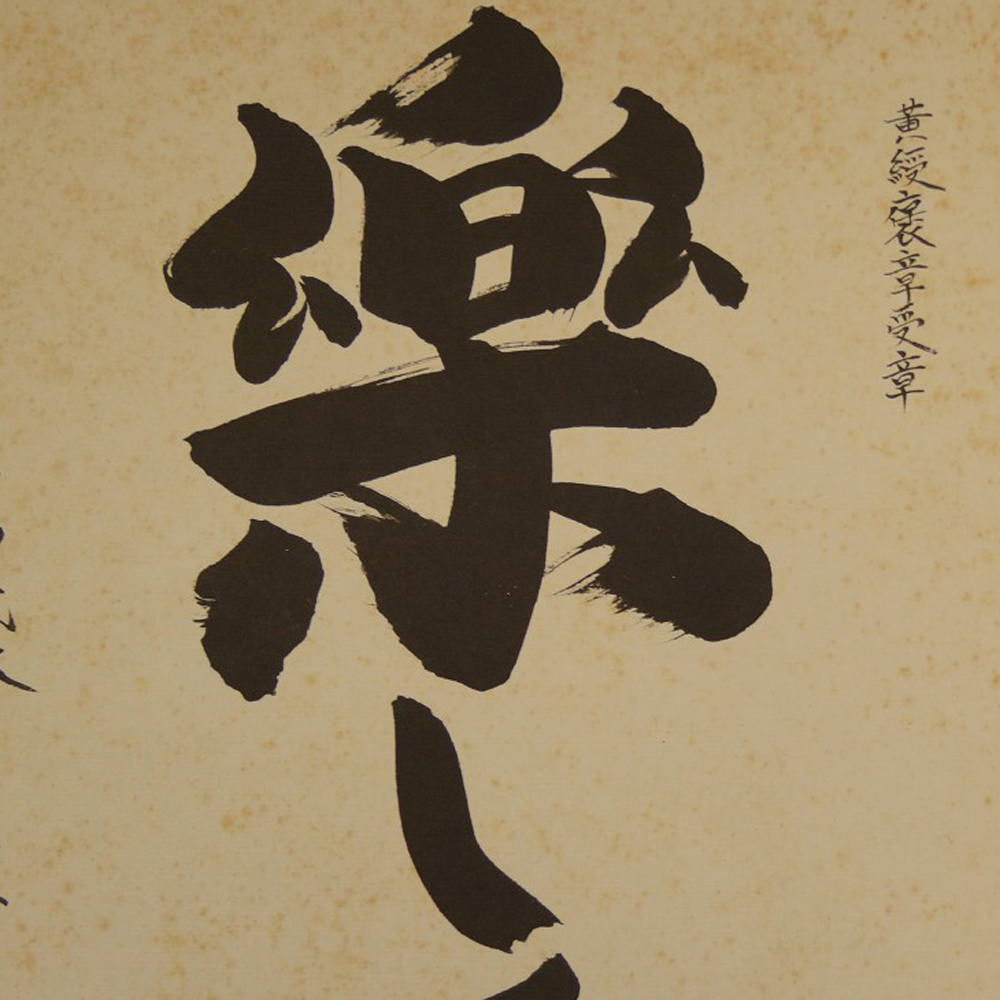 黄綬褒章受章
樂し